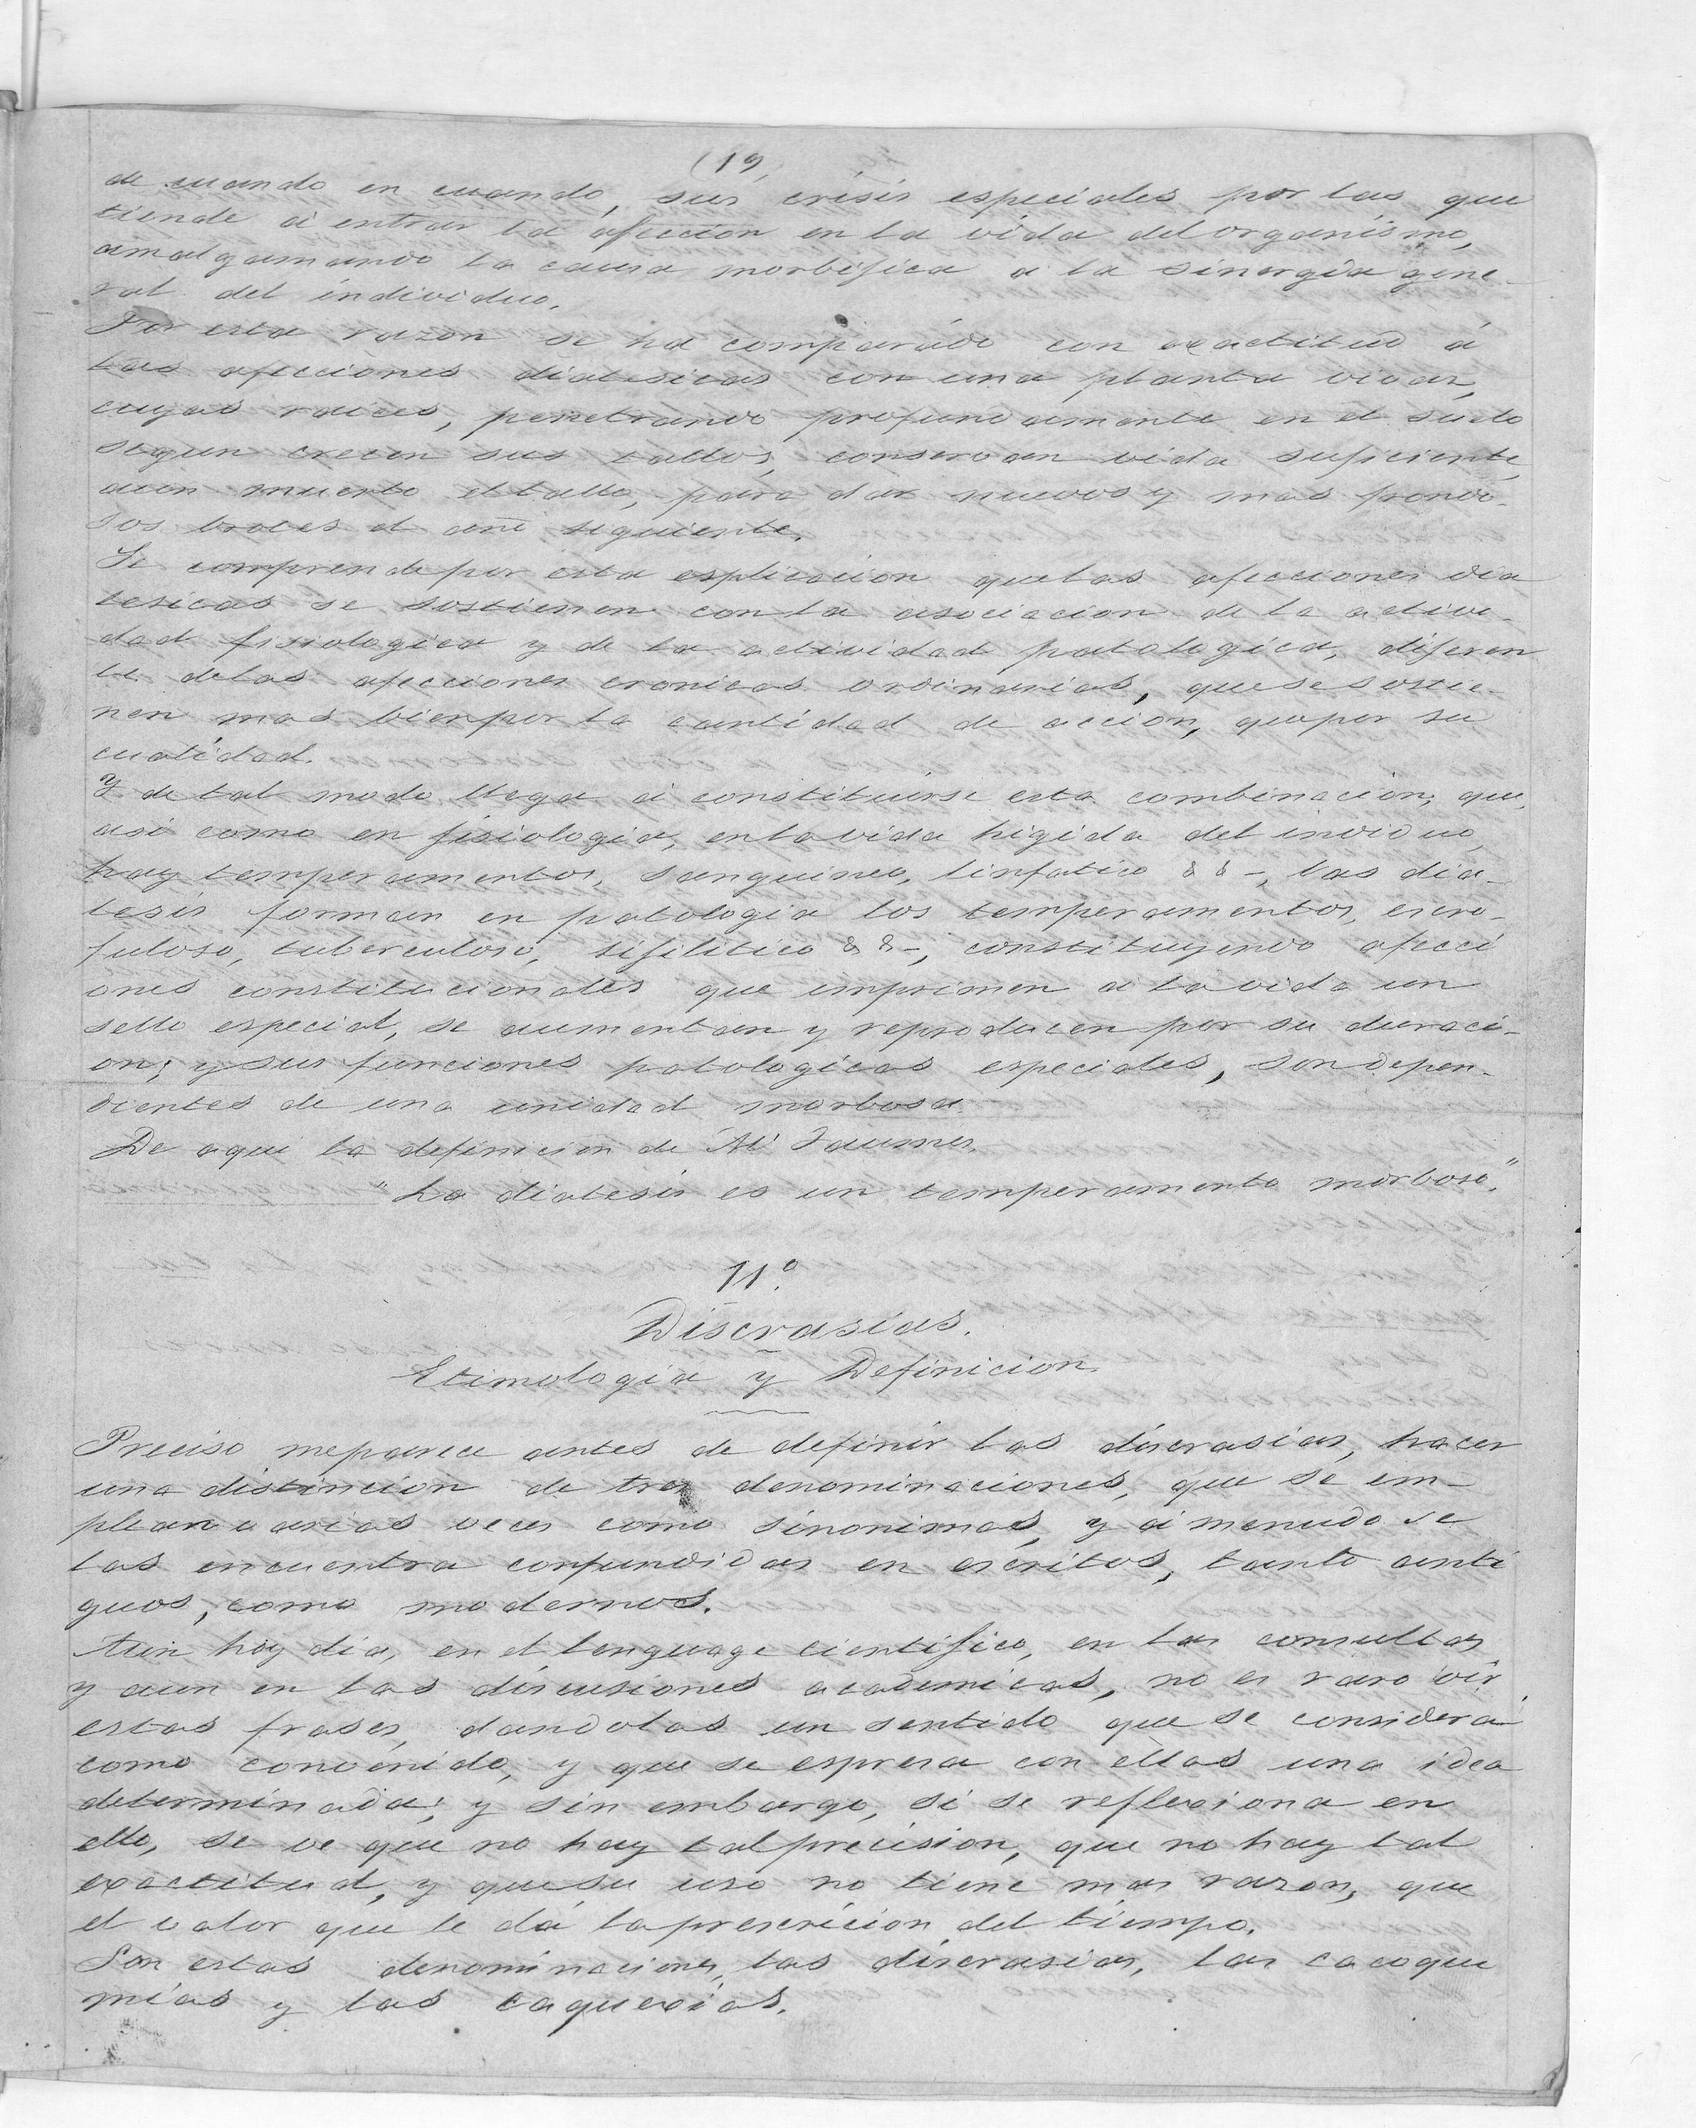 (19)
de cuando en cuando, sus crisis especiales por las que
tiende á entrar la afeccion en la vida del organismo,
amalgamando la causa morbifica a la sinergia gene-
ral del individuo.
Por esta razon se ha comparado con exactitud á
las afecciones diatesicas con una planta vivaz,
cuyas raices, penetrando profundamente en el suelo
segun crecen sus tallos, conservan vida suficiente,
aun muerto el tallo, para dar nuevos y mas frondo-
sos brotes el año siguiente.
Se comprende por esta esplicacion que las afecciones dia
tesicas se sostienen con la asociacion de la activi-
dad fisiologica y de la actividad patologica, diferen
te de las afecciones cronicas ordinarias, que se sostie-
nen mas bien por la cantidad de accion, que por su
cualidad.
Y de tal modo llega á constituirse esta combinacion, que,
asi como en fisiologia, en la vida higida del inviduo,
hay temperamentos, sanguineo, linfatico & & -, las dia-
tesis forman en patologia los temperamentos, escro-
fuloso, tuberculoso, sifilitico & & -, constituyendo afecci
ones constitucionales que imprimen á la vida un
sello especial, se aumentan y reproducen por su duraci-
on; y sus funciones patologicas especiales, son depen-
dientes de una unidad morbosa
De aqui la definicion de Mr Jaumes.
"La diatesis es un temperamento morboso."
11.º
Discrasias.
Etimologia y Definicion
Preciso me parece antes de definir las discrasias, hacer
una distincion de tres denominaciones, que se em-
plean varias veces como sinonimas, y á menudo se
las encuentra confundidas en escritos, tanto anti
guos, como modernos.
Aun hoy dia, en el lenguage cientifico, en las consultas
y aun en las discusiones academicas, no es raro oir
estas frases, dandolas un sentido que se considera
como convenido, y que se espresa con ellas una idea
determinada; y sin embargo, si se reflexiona en
ello, se ve que no hay tal precision, que no hay tal
exactitud, y que su uso no tiene mas razon, que
el valor que le dá la prescricion del tiempo.
Son estas denominaciones, las discrasias, las cacoqui
mias y las caquexias.